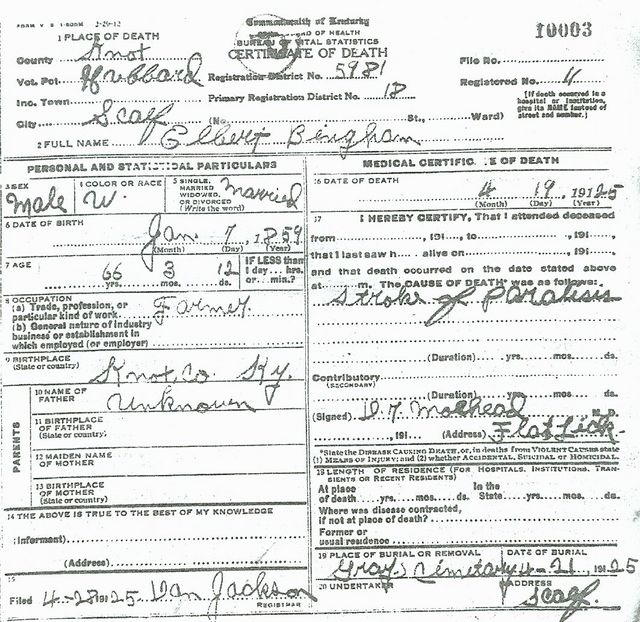 FORM V. S. 1-500M 2-29-12
Commonwealth of Kentucky
10003
BUREAU OF VITAL STATISTICS
CERTIFICATE OF DEATH
1 PLACE OF DEATH
County Knot
Vot. Pct. Hubbard
Inc. Town
City Scalf (No. St., Ward)
Registration District No. 5981
Primary Registration District No. 18
File No.
Registered No. 4
[If death occurred in a hospital or institution, give its NAME instead of street and number.]
2 FULL NAME Elbert Bingham
PERSONAL AND STATISTICAL PARTICULARS
3 SEX Male
4 COLOR OR RACE W.
5 SINGLE, MARRIED WIDOWED, OR DIVORCED (Write the word) Married
6 DATE OF BIRTH Jan 7, 1859
(Month) (Day) (Year)
7 AGE 66 yrs. 3 mos. 12 ds.
IF LESS than 1 day ... hrs. or ... min.?
8 OCCUPATION
(a) Trade, profession, or particular kind of work Farmer
(b) General nature of industry business or establishment in which employed (or employer)
9 BIRTHPLACE (State or country) Knot Co Ky.
PARENTS
10 NAME OF FATHER Unknown
11 BIRTHPLACE OF FATHER (State or country)
12 MAIDEN NAME OF MOTHER
13 BIRTHPLACE OF MOTHER (State or country)
14 THE ABOVE IS TRUE TO THE BEST OF MY KNOWLEDGE
(Informant)
(Address)
15
Filed 4-28 1925 Dan Jackson
REGISTRAR
MEDICAL CERTIFICATE OF DEATH
16 DATE OF DEATH 4 19, 191 25
(Month) (Day) (Year)
17 I HEREBY CERTIFY, That I attended deceased
from , 191 , to , 191 ,
that I last saw h alive on , 191 ,
and that death occurred on the date stated above
at m. The CAUSE OF DEATH* was as follows:
Stroke of Paralisis
(Duration) yrs. mos. ds.
Contributory (SECONDARY)
(Duration) yrs. mos. ds.
(Signed) M. D.
, 191 (Address) Flat Lick
*State the DISEASE CAUSING DEATH, or, in deaths from VIOLENT CAUSES state (1) MEANS OF INJURY; and (2) whether ACCIDENTAL, SUICIDAL or HOMICIDAL
18 LENGTH OF RESIDENCE (FOR HOSPITALS, INSTITUTIONS, TRANSIENTS OR RECENT RESIDENTS)
At place of death yrs. mos. ds. In the State yrs. mos. ds.
Where was disease contracted, if not at place of death?
Former or usual residence
19 PLACE OF BURIAL OR REMOVAL Grays Cemetary
DATE OF BURIAL 4-21, 191 25
20 UNDERTAKER
ADDRESS Scalf.